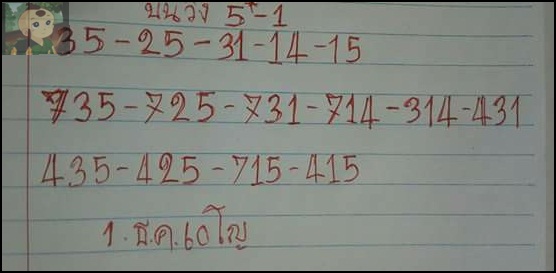 บนวิ่ง 5-1
35-25-31-14-15
735-725-731-714-314-431
435-425-715-415
1.ธ.ค.60โญ